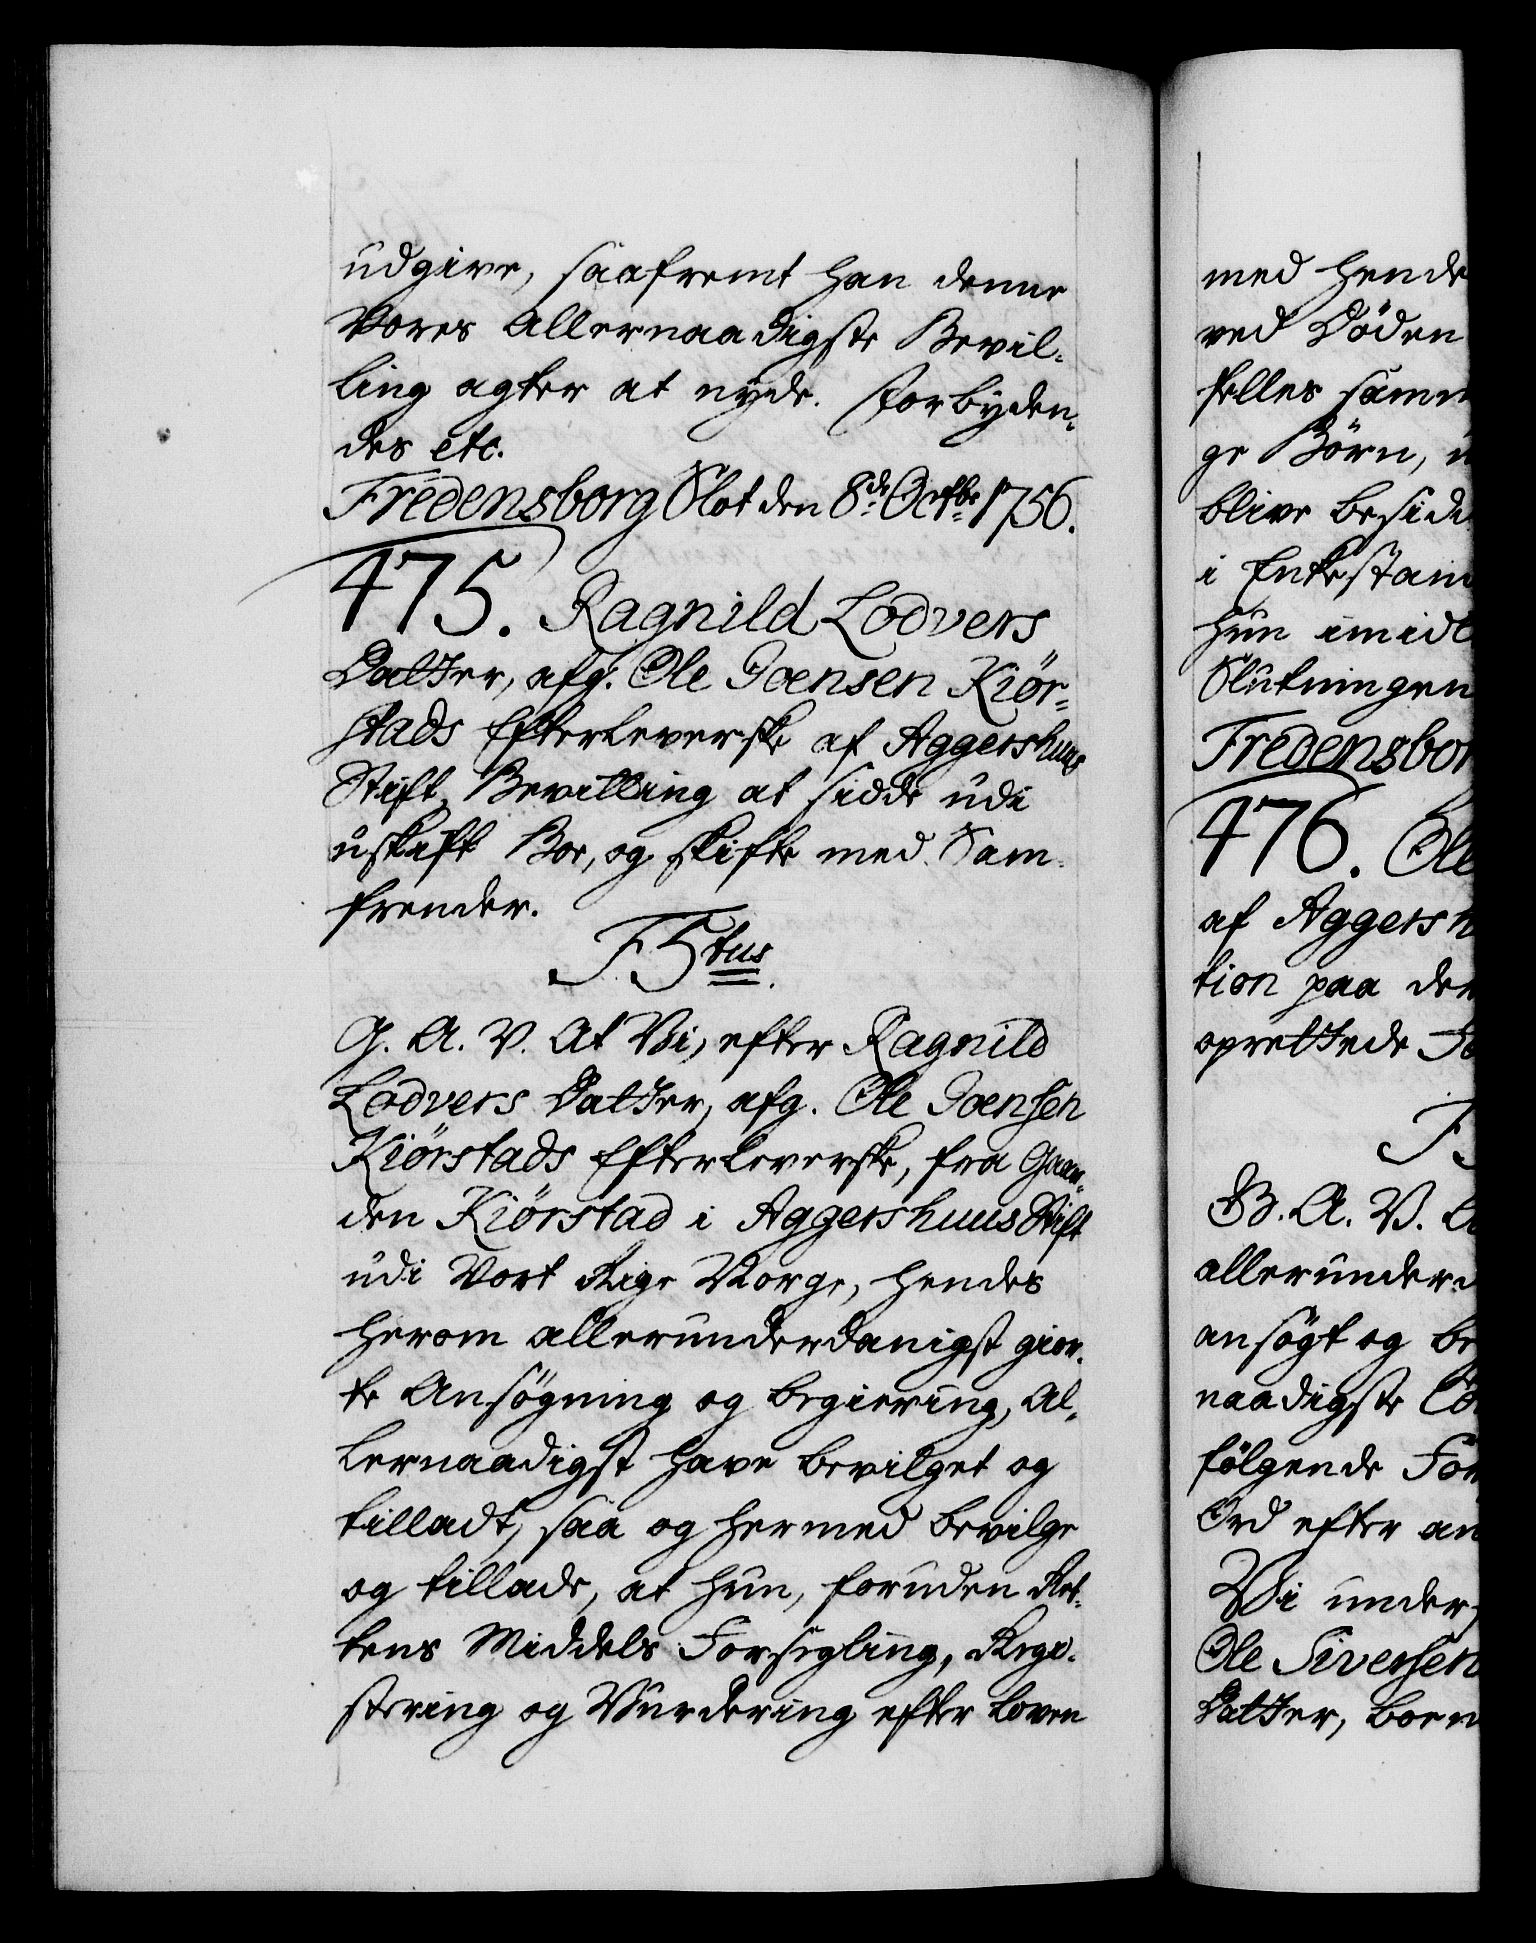 udgive, saafremt han denne
Vores Allernaadigste Bevil-
ling agter at nyde. Forbyden-
des etc.
Fredensborg Slot den 8de Octbr 1756.
475. Ragnild Lodvers
Datter, afg. Ole Joensen Kiør-
stads Efterleverske af Aggershuus
Stift, Bevilling at sidde udi
uskift Boe, og skifte med Sam-
frender.
F5tus.
G. A. V. At Vi, efter Ragnild
Lodvers Datter, afg. Ole Joensen
Kiørstads Efterleverske, fra Gaar-
den Kiørstad i Aggershuus Stift
udi Vort Rige Norge, hendes
herom allerunderdanigst gior-
te Ansøgning og begiering, Al-
lernaadigst have bevilget og
tilladt, saa og hermed bevilge
og tillade, at hun, foruden Ret-
tens Middels Forsegling, Regi-
stering og Vurdering efter Loven
med hende
ved Døden
felles samm
ge Børn, u
blive besidd
i Enkestand
hun imidl
Slutningen
Fredensbor
476. Ole
af Aggersh
tion paa de
oprettede Fo
F5
B. A. V. A
allerunderd
ansøgt og be
naadigste Co
følgende For
Ord efter an
Vi under-
Ole Siversen
Datter, boen